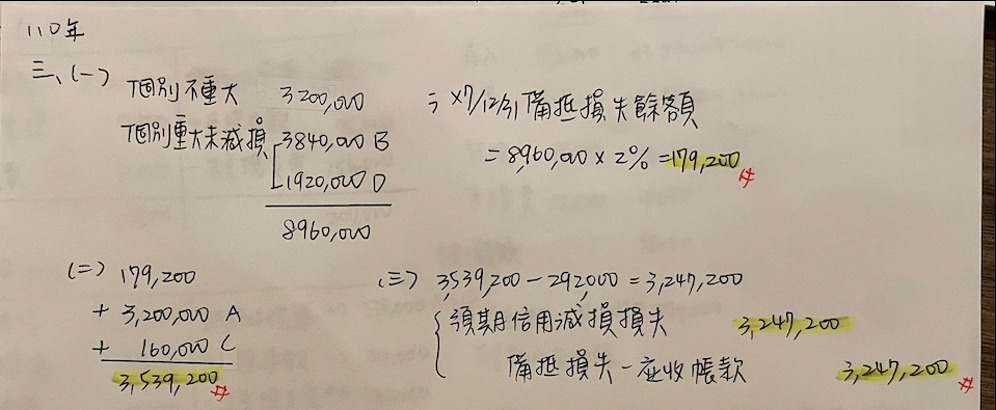 110年
三、(一)
個別不重大 3200,000
個別重大未減損 3840,000 B
1920,000 D
8960,000
∴ X7/12/31 備抵損失餘額
= 8,960,000 × 2% = 179,200 #
(二) 179,200
+ 3,200,000 A
+ 160,000 C
3,539,200 #
(三) 3,539,200 - 292,000 = 3,247,200
預期信用減損損失 3,247,200
備抵損失-應收帳款 3,247,200 #